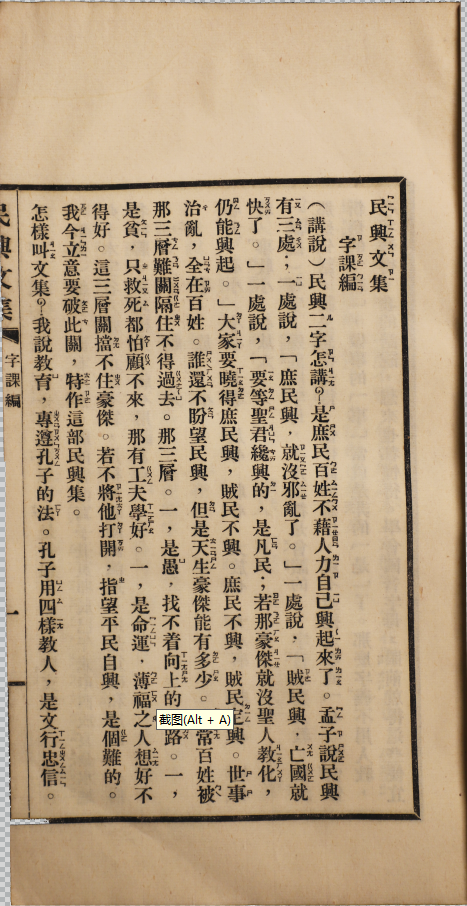 民興文集
字課編
(講說)民興二字怎講?是庶民百姓不藉人力自己興起來了。孟子說民興
有三處;一處說,「庶民興,就沒邪亂了。」一處說,「賊民興,亡國就
快了。」一處說,「要等聖君纔興的,是凡民;若那豪傑就沒聖人教化,
仍能興起。」大家要曉得庶民興,賊民不興。庶民不興,賊民定興。世事
治亂,全在百姓。誰還不盼望民興,但是天生豪傑能有多少。常百姓被
那三層難關隔住不得過去。那三層。一,是愚,找不着向上的路。一,
是貧,只救死都怕顧不來,那有工夫學好。一,是命運,薄福之人想好不
得好。這三層關擋不住豪傑。若不將他打開,指望平民自興,是個難的。
我今立意要破此關,特作這部民興集。
怎樣叫文集?我說教育,專遵孔子的法。孔子用四樣教人,是文行忠信。
民興文集
字課編
一
截图(Alt + A)